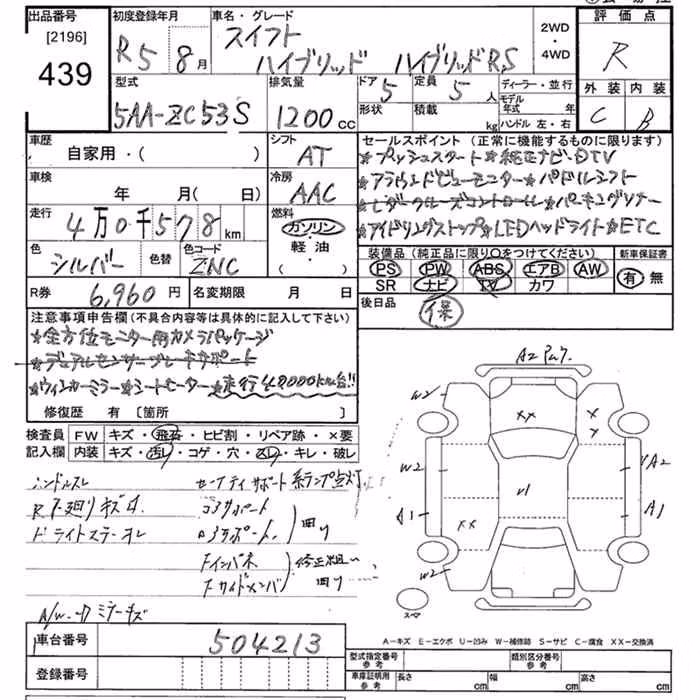 出品番号
[2196]
439
初度登録年月
R5 8月
車名・グレード
スイフト
ハイブリッド ハイブリッドRS
2WD
・
4WD
評価点
R
外装 内装
C B
型式
5AA-ZC53S
排気量
1200cc
ドア
5
定員
5人
形状
積載
kg
ディーラー・並行
モデル
年式 年
ハンドル 左・右
車歴
自家用・( )
シフト
AT
車検
年 月(日)
冷房
AAC
走行
4万0千578km
燃料
ガソリン
軽油・
( ・ )
色
シルバー
色替
色コード
ZNC
R券
6,960円
名変期限 月 日
セールスポイント(正常に機能するものに限ります)
★プッシュスタート★純正ナビ・DTV
★アラウンドビューモニター★パドルシフト
★レーダークルーズコントロール★パーキングソナー
★アイドリングストップ★LEDヘッドライト★ETC
装備品(純正品に限り○をつけてください)
PS PW ABS エアB AW
SR ナビ TV カワ
新車保証書
有・無
後日品
保
注意事項申告欄(不具合内容等は具体的に記入して下さい)
★全方位モニター用カメラパッケージ
★デュアルセンサーブレーキサポート
★ウィンカーミラー★シートヒーター★走行40000km台!!
修復歴 有 [箇所 ]
検査員
記入欄
FW キズ・飛石・ヒビ割・リペア跡・×要
内装 キズ・汚レ・コゲ・穴・スレ・キレ・破レ
ハンドルスレ
セーフティサポート系ランプ点灯
コアサポート
ロアサポート
回り
Fインパネ
Fサイドメンバ
修正粗い
回り
A/W・ミラーキズ
A2
W2
XX
X
Y
W2
U1
YA2
A1
XX
A1
W2
スペア
A-キズ E-エクボ U-凹み W-補修跡 S-サビ C-腐食 XX-交換済
車台番号
504213
登録番号
型式指定番号
参考
類別区分番号
参考
車庫証明用
参考
長さ cm 幅 cm 高さ cm